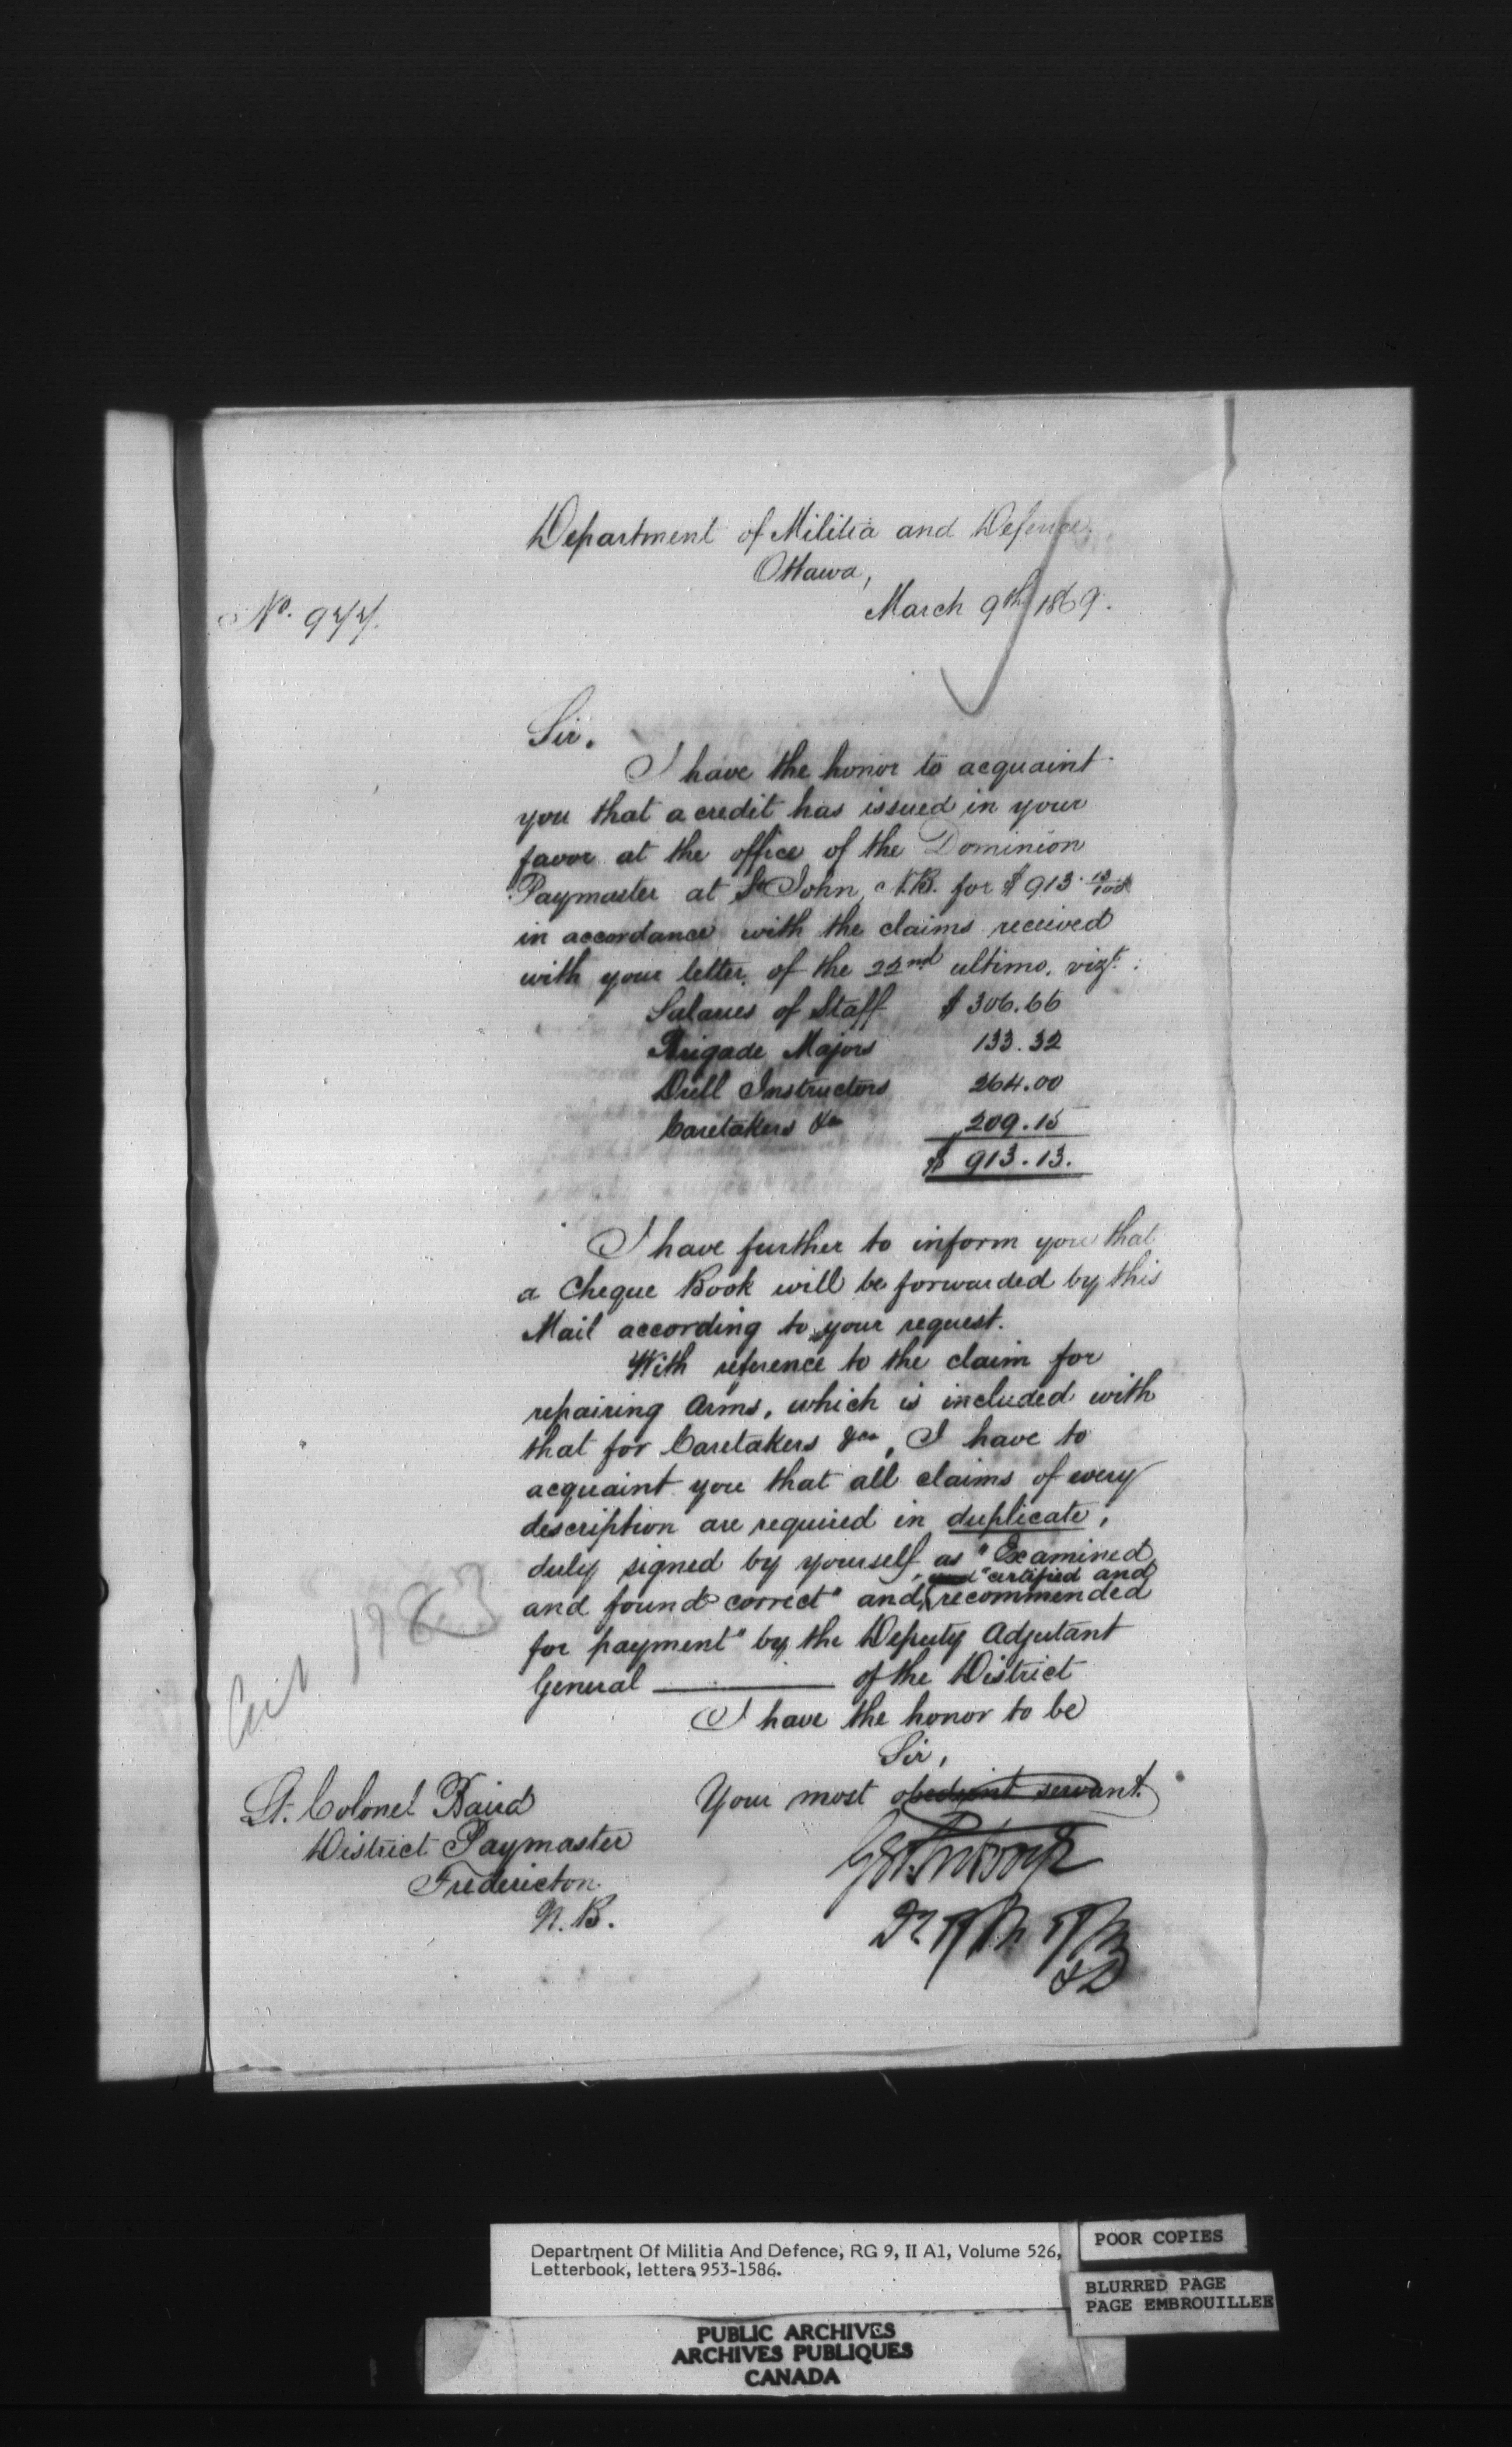 Department of Militia and Defence.
Ottawa,
March 9th 1869.
No. 977.
Sir.
I have the honor to acquaint
you that a credit has issued in your
favor at the office of the Dominion
Paymaster at St John, N.B. for $913.13/100
in accordance with the claims received
with your letter of the 22nd ultimo, vizt:
Salaries of Staff $306.66
Brigade Majors 133.32
Drill Instructors 264.00
Caretakers &c 209.15
$ 913.13.
I have further to inform you that
a Cheque Book will be forwarded by this
Mail according to your request.
With reference to the claim for
repairing Arms, which is included with
that for Caretakers &ca, I have to
acquaint you that all claims of every
description are required in duplicate,
duly signed by yourself, as "Examined
and "certified and
and found correct" and recommended
for payment" by the Deputy Adjutant
General of the District
I have the honor to be
Sir,
Your most obedient servant.
Lt. Colonel Baird
District Paymaster
Fredericton
N.B.
Department Of Militia And Defence, RG 9, II A1, Volume 526,
Letterbook, letters 953-1586.
POOR COPIES
BLURRED PAGE
PAGE EMBROUILLEE
PUBLIC ARCHIVES
ARCHIVES PUBLIQUES
CANADA